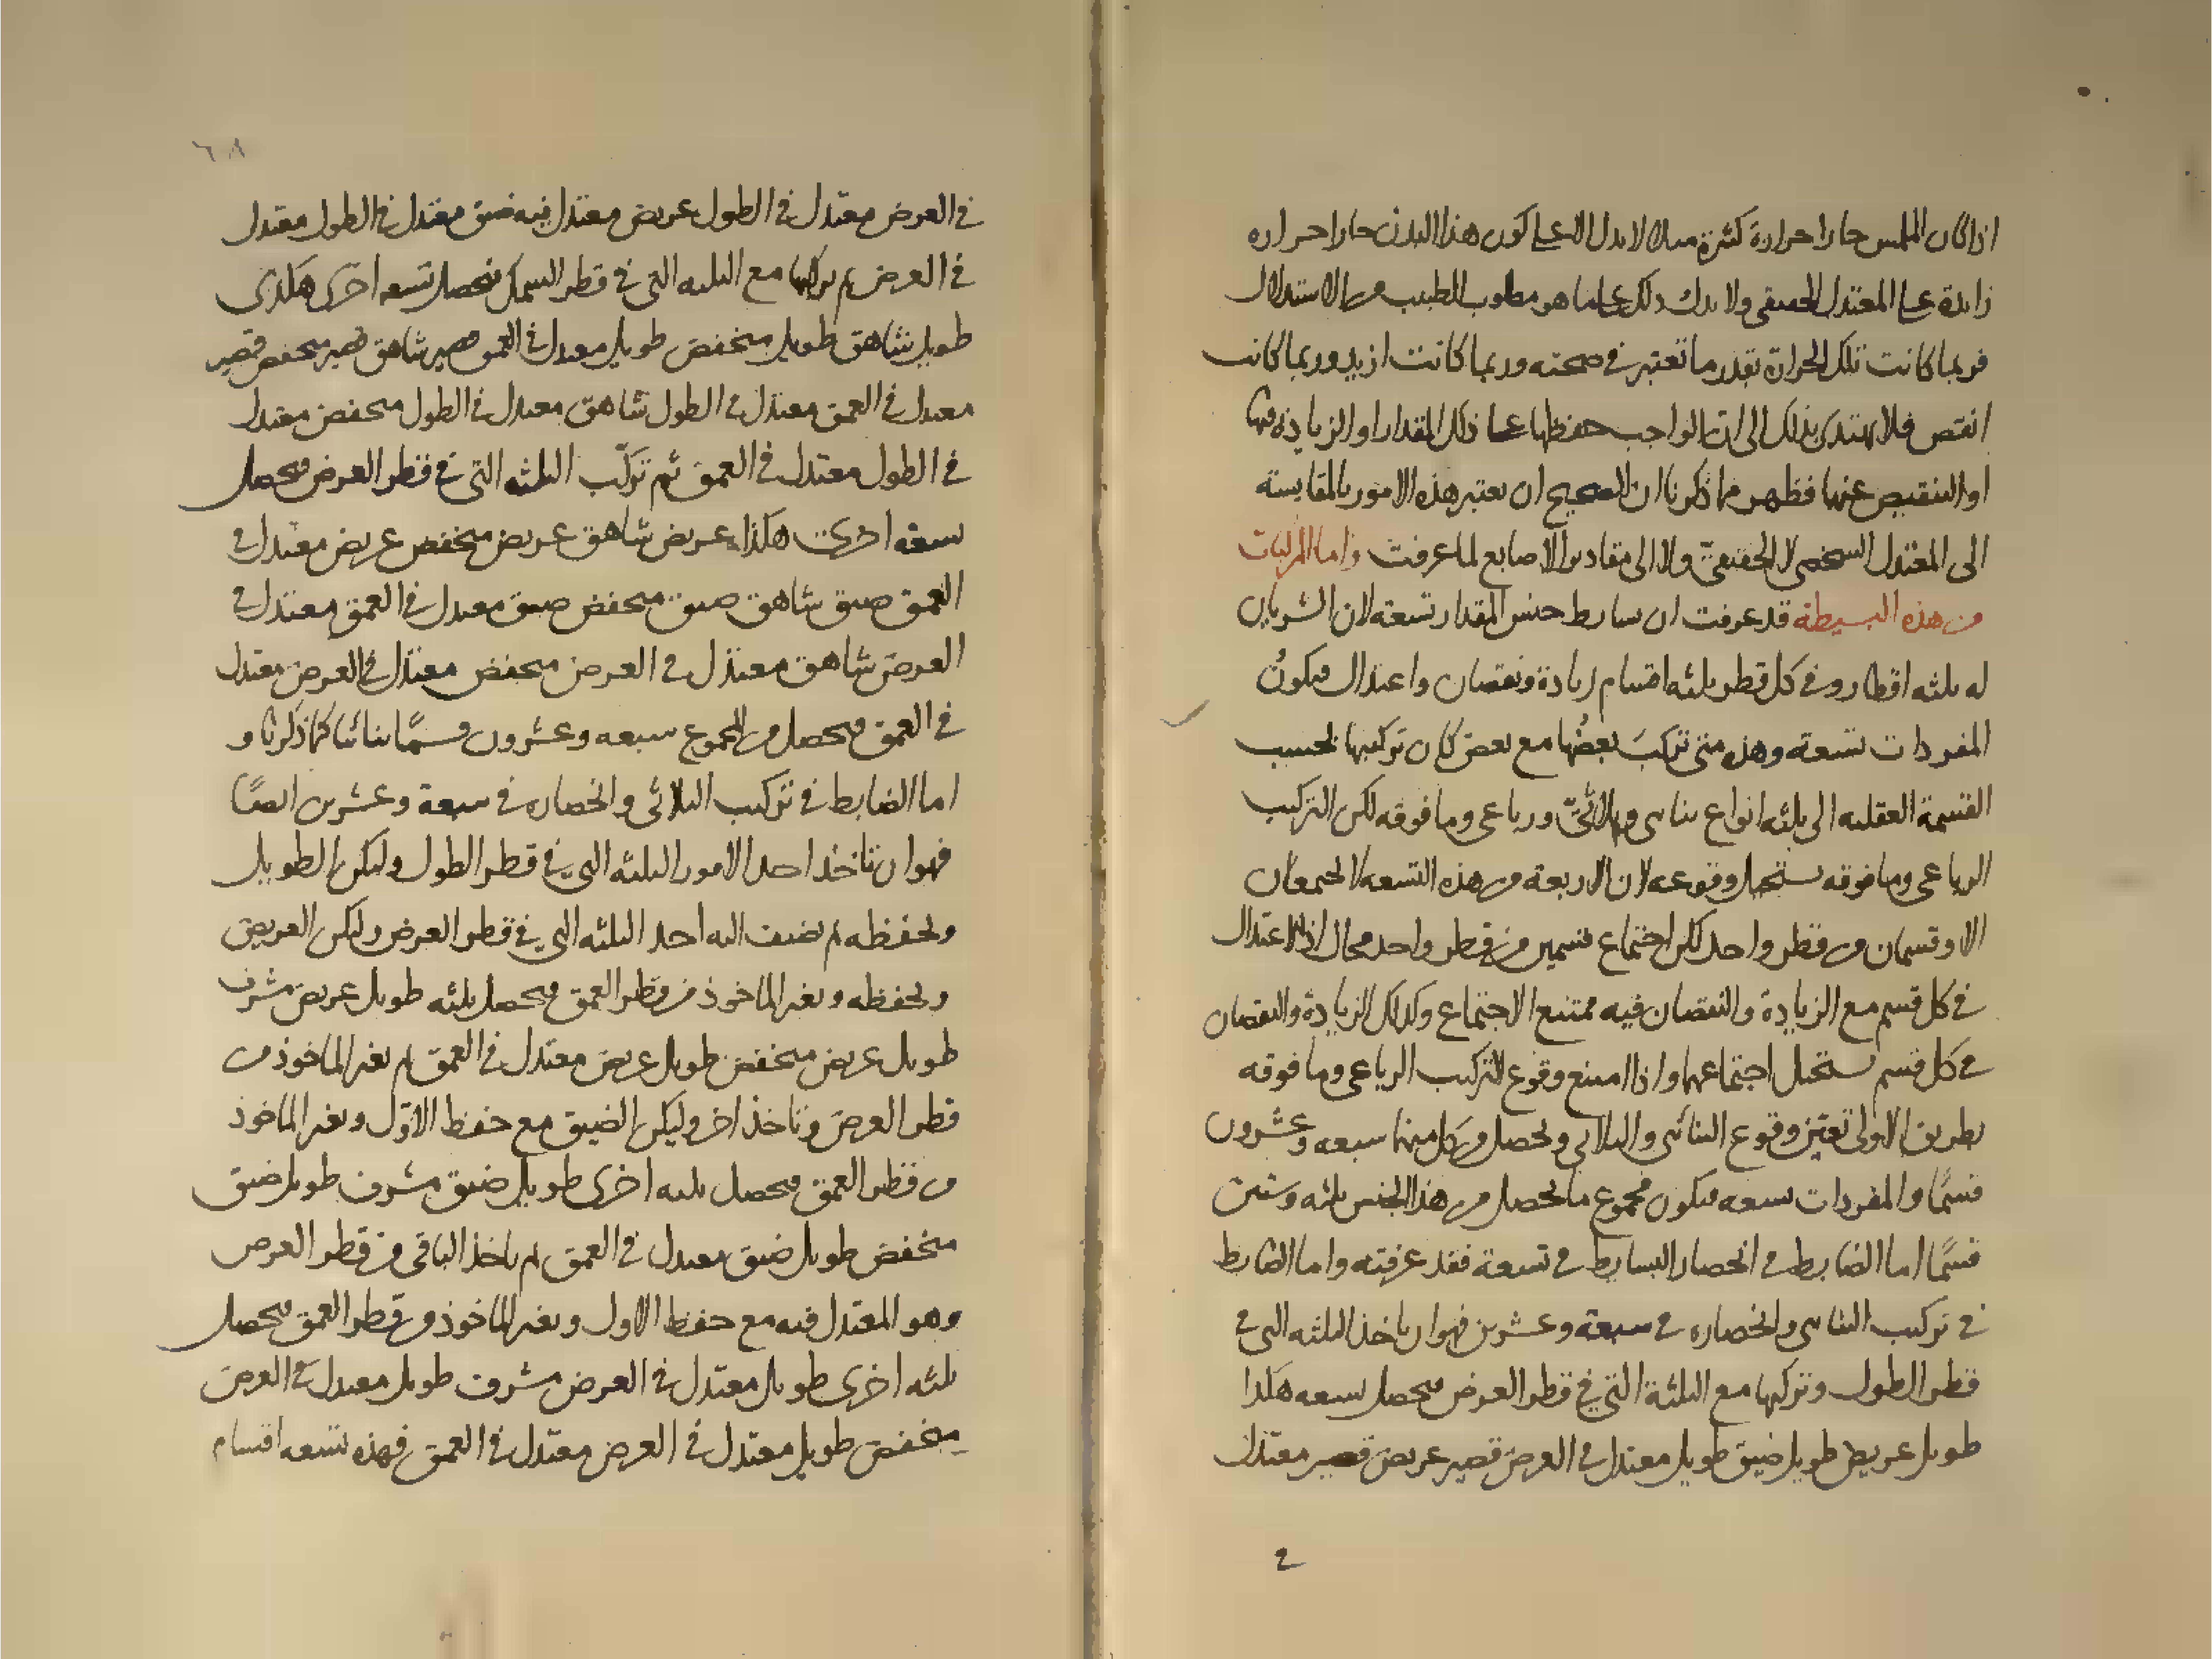 اذا كان الملمس حارا حرارة كثيرة مثلا لا يدل الا على كون هذا البدن حارا حرارة
زايدة على المعتدل الحقيقى ولا يدل ذلك على ما هو مطلوب للطبيب من الاستدلال
فربما كانت تلك الحرارة بقدر ما تعتبر في صحته وربما كانت ازيد وربما كانت
انقص فلا يهتدى بذلك الى ان الواجب حفظها على ذلك المقدار او الزيادة فيها
او التنقيص عنها فظهر مما ذكرنا ان الصحيح ان يعتبر هذه الامور بالمقايسة
الى المعتدل الشخصى لا الحقيقىّ ولا الى مقادير الاصابع لما عرفت واما المركبات
من هذه البسيطة قد عرفت ان بسايط جنس المقدار تسعة لان الشريان
له ثلثه اقطار وفي كل قطر ثلثه اقسام زيادة ونقصان واعتدال فيكونُ
المفردات تسعة وهذه متى تركبَ بعضُها مع بعض كان تركيبها بحسب
القسمة العقليه الى ثلثه انواع ثنائى وثلاثىّ ورباعى وما فوقه لكن التركيب
الرباعى وما فوقه يستحيل وقوعه لان الاربعة من هذه التسعه لا يجتمعان
الا وقسمان من قطر واحد لكن اجتماع قسمين من قطر واحد محال اذ الاعتدال
في كل قسم مع الزيادة والنقصان فيه ممتنع الاجتماع وكذلك الزيادة والنقصان
في كل قسم يستحيل اجتماعهما واذا امتنع وقوع التركيب الرباعى وما فوقه
بطريق الاولى تعين وقوع الثنائى والثلاثى ويحصل من كل منهما سبعه وعشرون
قسمًا والمفردات تسعه فيكون مجموع ما يحصل من هذا الجنس ثلثه وستين
قسمًا اما الضابط في انحصار البسايط في تسعة فقد عرفته واما الضابط
في تركيب الثنائى وانحصاره في سبعة وعشرين فهو ان ياخذ الثلثه التى في
قطر الطول وتركبها مع الثلثة التي في قطر العرض فيحصل تسعه هكذا
طويل عريض طويل ضيق طويل معتدل في العرض قصير عريض قصير معتدل
٢
٦٨
في العرض معتدل في الطول عريض معتدل فيه ضيق معتدل في الطول معتدل
في العرض ثم تركبها مع الثلثه التى في قطر السمك فيحصل تسعه اخرى هكذى
طويل شاهق طويل منخفض طويل معتدل في العمق قصير شاهق قصير منخفض قصير
معتدل في العمق معتدل في الطول شاهق معتدل في الطول منخفض معتدل
في الطول معتدل في العمق ثم تركّب الثلثه التى في قطر العرض فيحصل
تسعه اخرى هكذا عريض شاهق عريض منخفض عريض معتدل في
العمق ضيق شاهق ضيق منخفض ضيق معتدل في العمق معتدل في
العرض شاهق معتدل في العرض منخفض معتدل في العرض معتدل
في العمق فيحصل من المجموع سبعه وعشرون قسمًا ثنائيا كما ذكرنا و
اما الضابط في تركيب الثلاثى وانحصاره في سبعة وعشرين ايضًا
فهو ان تاخذ احد الامور الثلثه التى في قطر الطول وليكن الطويل
وتحفظه ثم تضيف اليه احد الثلثه التى في قطر العرض وليكن العريض
وتحفظه وتغير الماخوذ من قطر العمق فيحصل ثلثه طويل عريض مشرف
طويل عريض منخفض طويل عريض معتدل في العمق ثم تغير الماخوذ من
قطر العرض وتاخذ اخر وليكن الضيق مع حفظ الاوّل وتغير الماخوذ
من قطر العمق فيحصل ثلثه اخرى طويل ضيق مشرف طويل ضيق
منخفض طويل ضيق معتدل في العمق ثم ياخذ الباقى من قطر العرض
وهو المعتدل فيه مع حفظ الاول وتغير الماخوذ من قطر العمق فيحصل
ثلثه اخرى طويل معتدل في العرض مشرف طويل معتدل في العرض
منخفض طويل معتدل في العرض معتدل في العمق فهذه تسعه اقسام